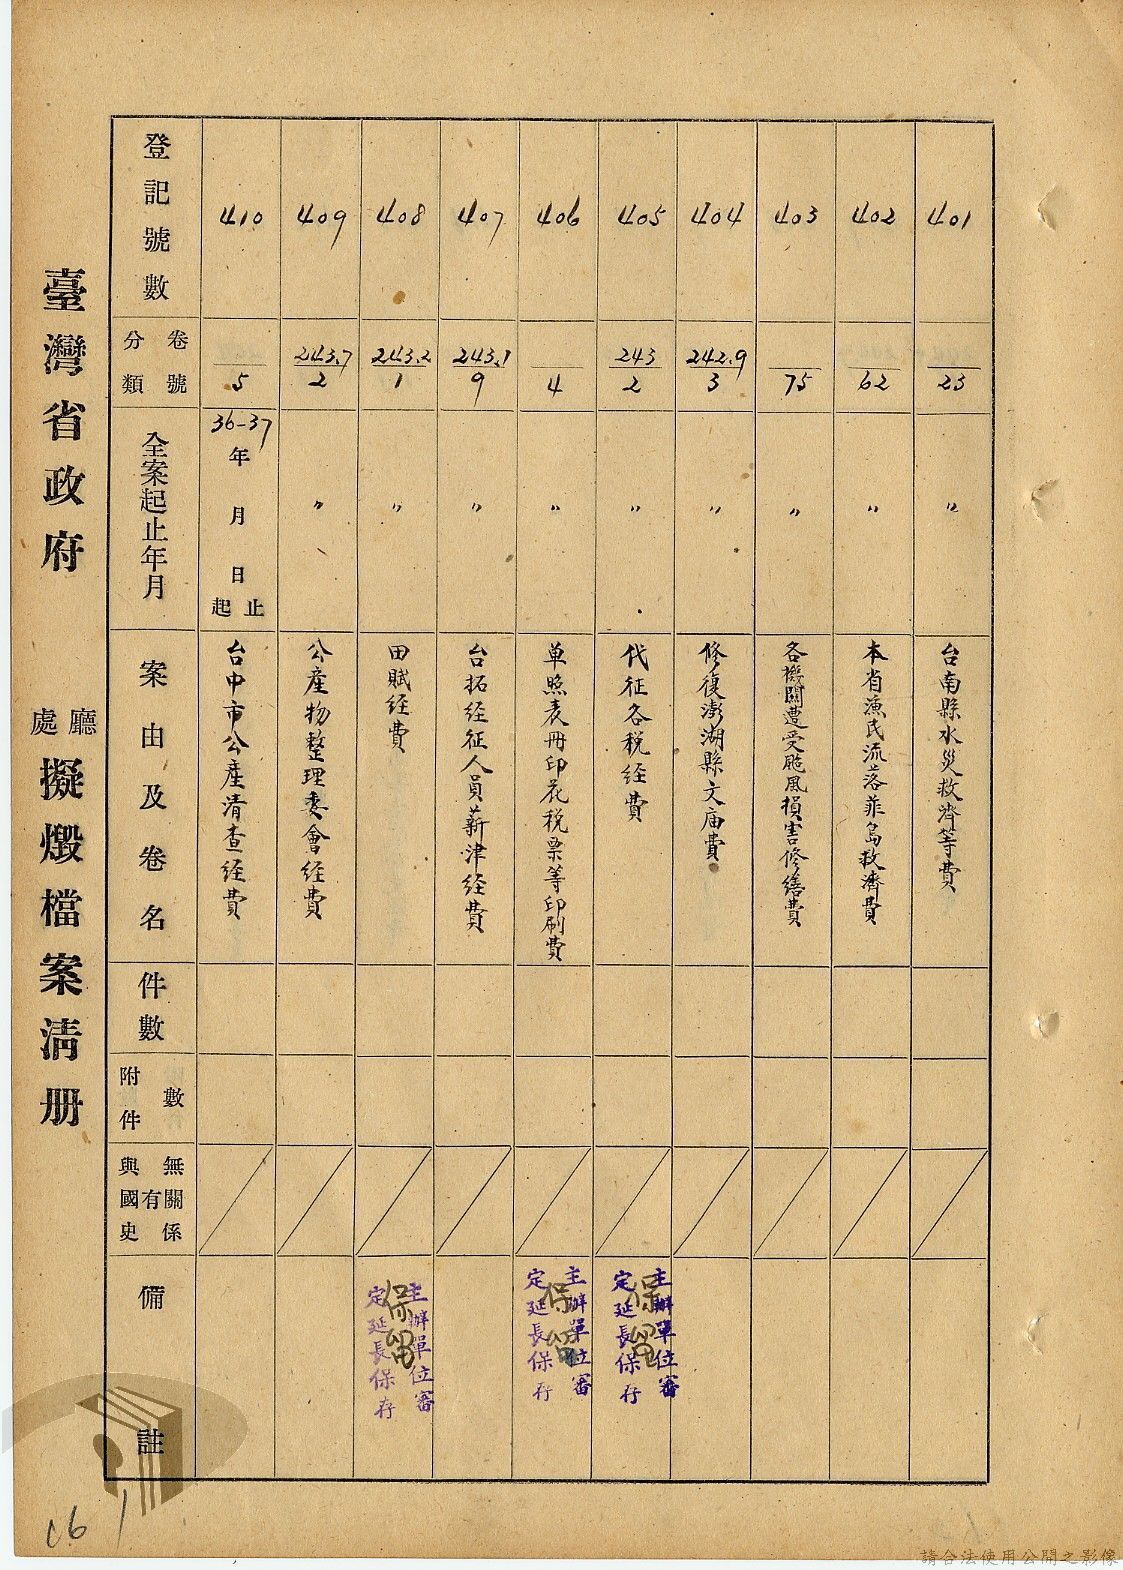 臺灣省政府 廳處 擬燬檔案清册
登記號數
卷號
分類
全案起止年月
案由及卷名
件數
附件數
與國史有無關係
備註
401
23
〃
台南縣水災救濟等費
402
62
〃
本省漁民流落菲島救濟費
403
75
〃
各機關遭受颱風損害修繕費
404
242.9
3
〃
修復澎湖縣文廟費
405
243
2
〃
代征各税经費
保留
主辦單位審
定延長保存
406
4
〃
单照表冊印花税票等印刷費
保留
主辦單位審
定延長保存
407
243.1
9
〃
台拓经征人員薪津经費
408
243.2
1
〃
田賦经費
保留
主辦單位審
定延長保存
409
243.7
2
〃
公產物整理委會经費
410
5
36-37
年
月
日
起止
台中市公產清查经費
請合法使用公開之影像